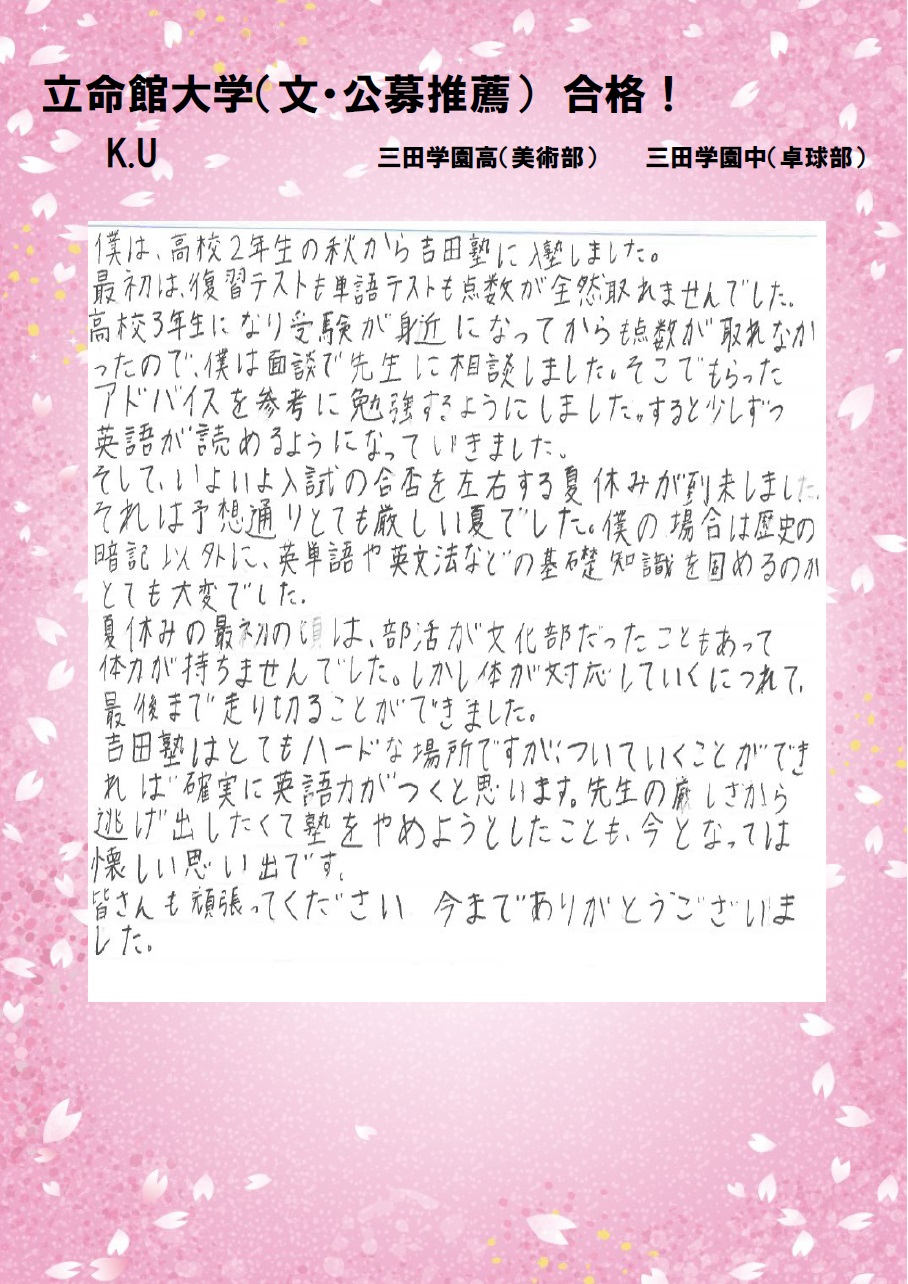 立命館大学（文・公募推薦） 合格！
K.U 三田学園高（美術部） 三田学園中（卓球部）
僕は、高校2年生の秋から吉田塾に入塾しました。
最初は、復習テストも単語テストも点数が全然取れませんでした。
高校3年生になり受験が身近になってからも点数が取れなか
ったので、僕は面談で先生に相談しました。そこでもらった
アドバイスを参考に勉強するようにしました。すると少しずつ
英語が読めるようになっていきました。
そして、いよいよ入試の合否を左右する夏休みが到来しました。
それは予想通りとても厳しい夏でした。僕の場合は歴史の
暗記以外に、英単語や英文法などの基礎知識を固めるのが
とても大変でした。
夏休みの最初の頃は、部活が文化部だったこともあって
体力が持ちませんでした。しかし体が対応していくにつれて、
最後まで走り切ることができました。
吉田塾はとてもハードな場所ですが、ついていくことができ
れば確実に英語力がつくと思います。先生の厳しさから
逃げ出したくて塾をやめようとしたことも、今となっては
懐しい思い出です。
皆さんも頑張ってください 今までありがとうございま
した。